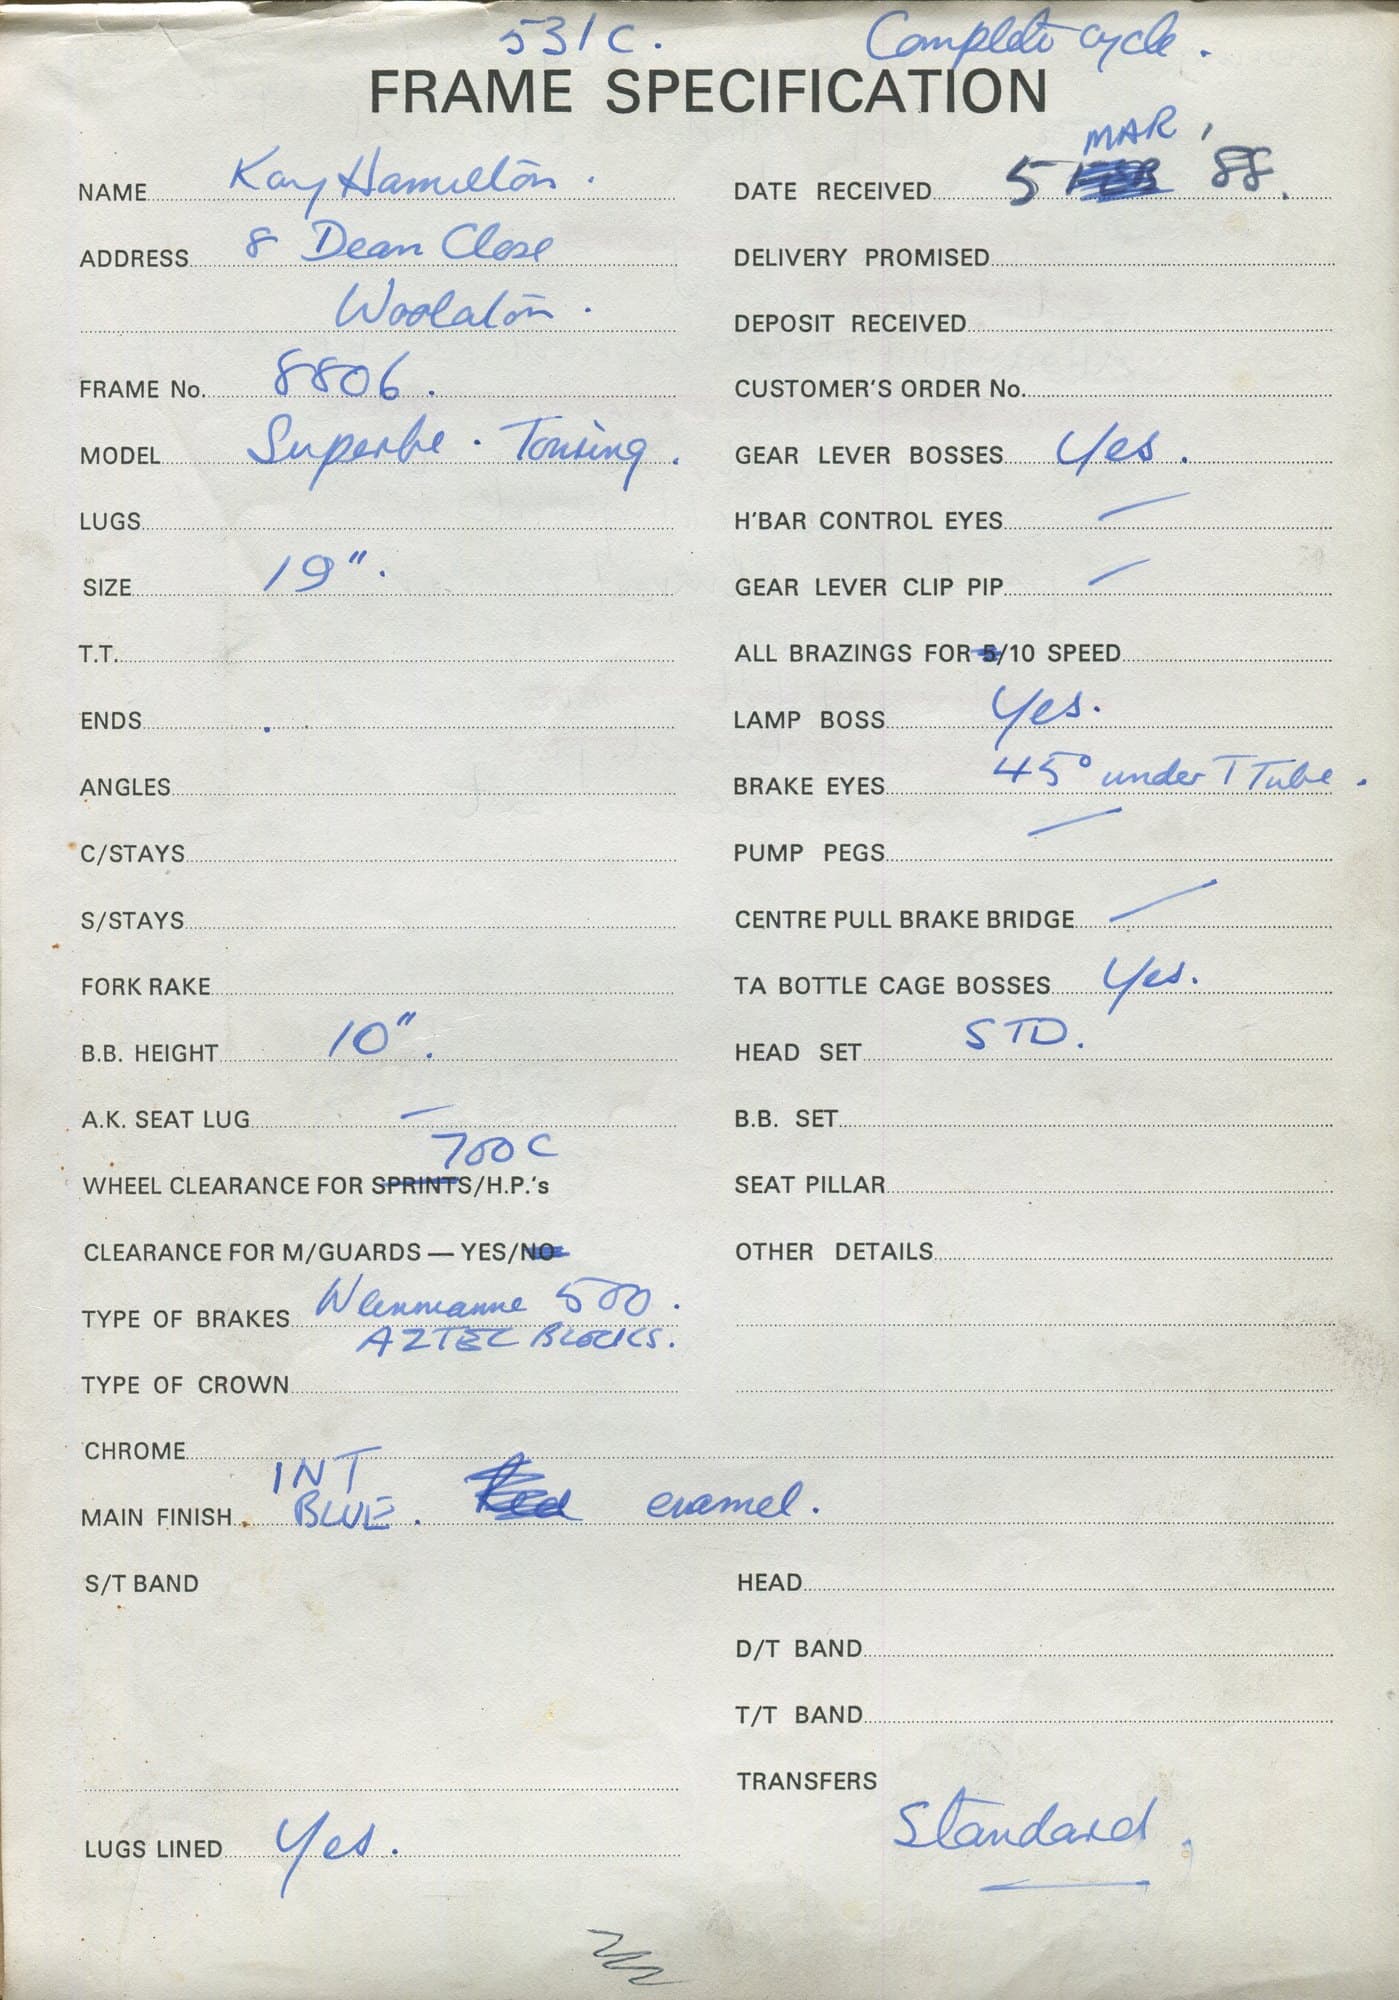 531C. Complete cycle.
FRAME SPECIFICATION
NAME Kay Hamilton.
ADDRESS 8 Dean Close
Woolaton.
FRAME No. 8806.
MODEL Superbe. Touring.
LUGS
SIZE 19".
T.T.
ENDS .
ANGLES
C/STAYS
S/STAYS
FORK RAKE
B.B. HEIGHT 10".
A.K. SEAT LUG —
700C
WHEEL CLEARANCE FOR SPRINTS/H.P.'s
CLEARANCE FOR M/GUARDS — YES/NO
TYPE OF BRAKES Wienmanne 500.
AZTEC BLOCKS.
TYPE OF CROWN
MAR,
DATE RECEIVED 5 FEB 88.
DELIVERY PROMISED
DEPOSIT RECEIVED
CUSTOMER'S ORDER No.
GEAR LEVER BOSSES Yes.
H'BAR CONTROL EYES —
GEAR LEVER CLIP PIP —
ALL BRAZINGS FOR 5/10 SPEED
LAMP BOSS Yes.
BRAKE EYES 45° under T Tube.
PUMP PEGS —
CENTRE PULL BRAKE BRIDGE —
TA BOTTLE CAGE BOSSES Yes.
HEAD SET STD.
B.B. SET
SEAT PILLAR
OTHER DETAILS
CHROME
INT
MAIN FINISH BLUE. Red enamel.
S/T BAND
LUGS LINED Yes.
HEAD
D/T BAND
T/T BAND
TRANSFERS
Standard.